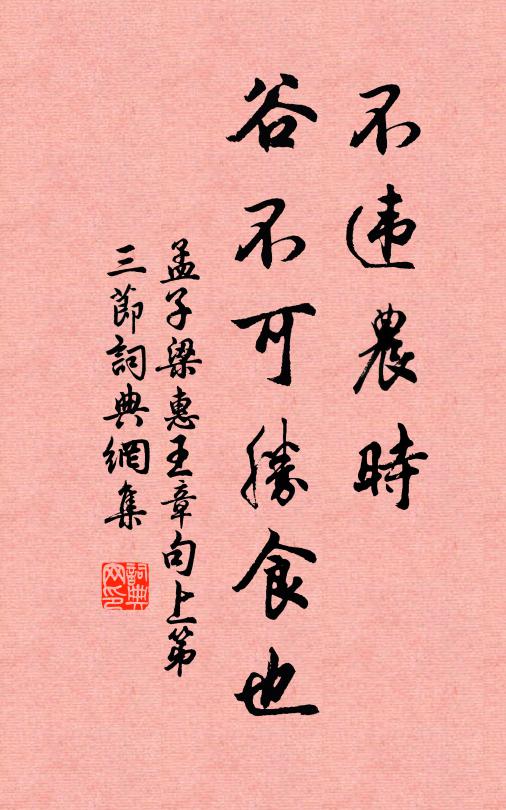 不违農時
谷不可勝食也
孟子梁惠王章句上第
三節詞典網集
詞典
网印